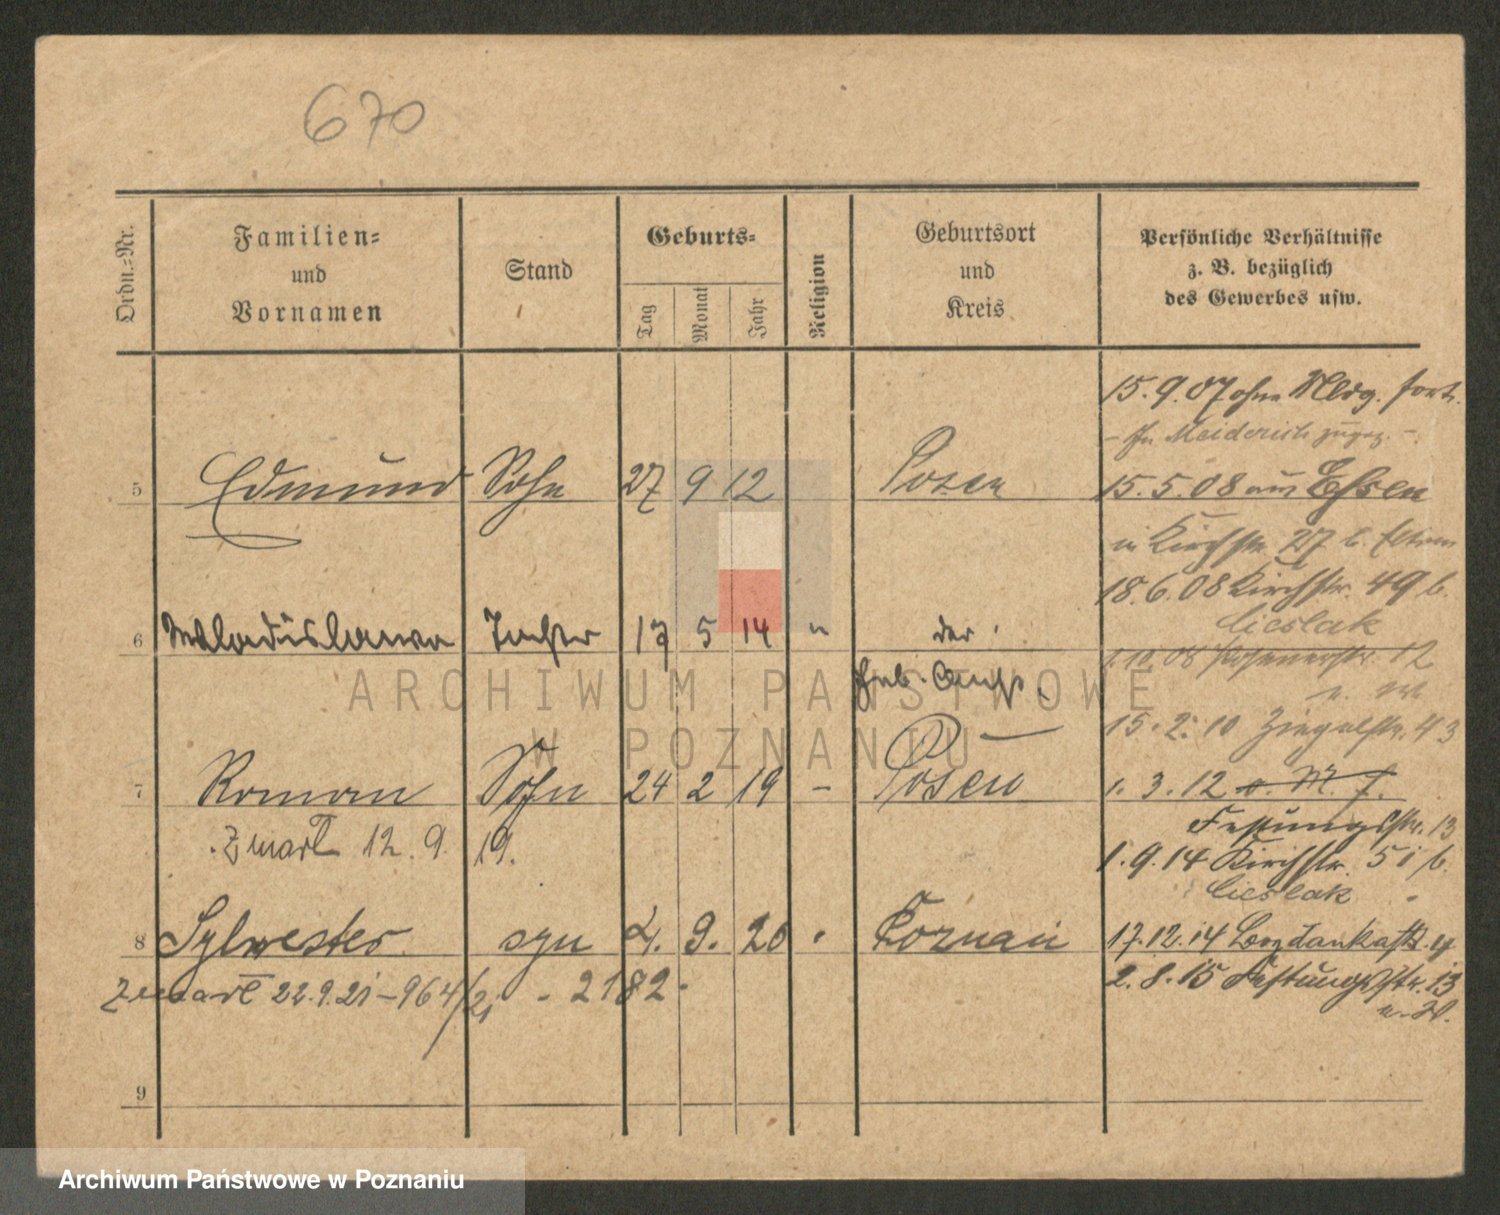 670
Ordn.-Nr.
Familien-
und
Vornamen
Stand
Geburts-
Tag
Monat
Jahr
Religion
Geburtsort
und
Kreis
Persönliche Verhältnisse
z. B. bezüglich
des Gewerbes usw.
5 Edmund Sohn 27 9 12 Posen
6 Wladislawa Tochter 17 5 14 " der
7 Roman Sohn 24 2 19 - Posen
Zmarł 12. 9. 19.
8 Sylwester syn 2. 9. 20 Poznań
Zmarł 22.9.21 - 964/21 - 2182 -
9
15. 9. 07 ohne Mldg. fort.
- In Meiderich zugez. -
15. 5. 08 aus Essen
in Kirchstr. 27 b. Eltern
18. 6. 08 Kirchstr. 49 b.
Cieslak
1. 10. 08 Posenerstr. 12
15. 2. 10 Ziegelstr. 43
1. 3. 12 v. M. f.
Festungsstr. 13
1. 9. 14 Kirchstr. 51 b.
Cieslak
17. 12. 14 Bogdankastr.
2. 8. 15 Festungsstr. 13
ARCHIWUM PAŃSTWOWE
W POZNANIU
Archiwum Państwowe w Poznaniu